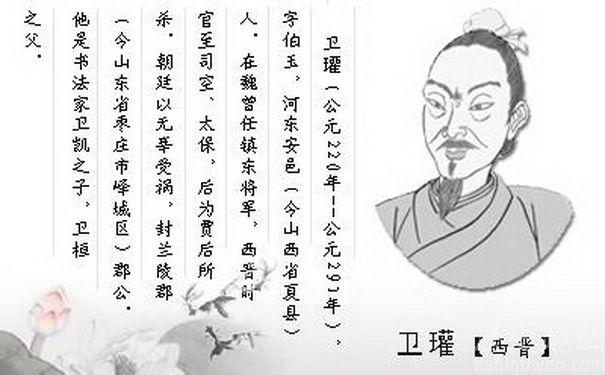 卫瓘(公元220年--公元291年),
字伯玉,河东安邑(今山西省夏县)
人.在魏曾任镇东将军,西晋时
官至司空、太保,后为贾后所
杀.朝廷以无辜受祸,封兰陵郡
(今山东省枣庄市峄城区)郡公.
他是书法家卫凯之子,卫桓
之父.
卫瓘【西晋】